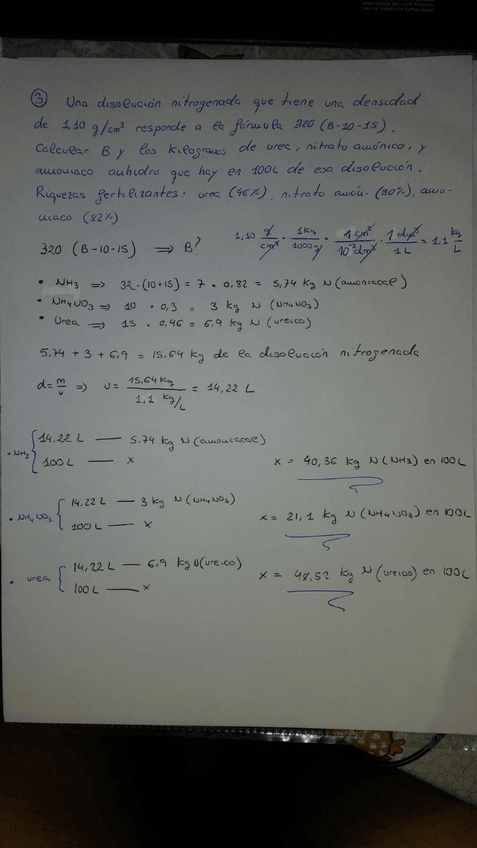 ③ Una disolución nitrogenada que tiene una densidad
de 1.10 g/cm³ responde a la fórmula 320 (B-10-15).
Calcular B y los kilogramos de urea, nitrato amónico, y
amoniaco anhidro que hay en 100L de esa disolución.
Riquezas fertilizantes: urea (46%), nitrato amón. (30%), amo-
niaco (82%)
320 (B-10-15) ⇒ B?
1,10 g/cm³ · 1Kg/1000g · 1 cm³/10⁻³dm³ · 1 dm³/1 L = 1.1 Kg/L
• NH3 ⇒ 32-(10+15) = 7 · 0,82 = 5,74 Kg N (amoniacal)
• NH4NO3 ⇒ 10 · 0,3 = 3 kg N (NH4NO3)
• Urea ⇒ 15 · 0,46 = 6,9 kg N (ureico)
5,74 + 3 + 6,9 = 15,64 kg de la disolución nitrogenada
d= m/v ⇒ v = 15,64 Kg / 1,1 Kg/L = 14,22 L
• NH3 { 14.22 L — 5.74 kg N (amoniacal)
100L — x x = 40,36 kg N (NH3) en 100L
• NH4NO3 { 14.22L — 3 kg N (NH4NO3)
100L — x x = 21,1 kg N (NH4NO3) en 100L
• urea { 14,22 L — 6,9 kg N (ureico)
100L — x x = 48,52 kg N (ureico) en 100L